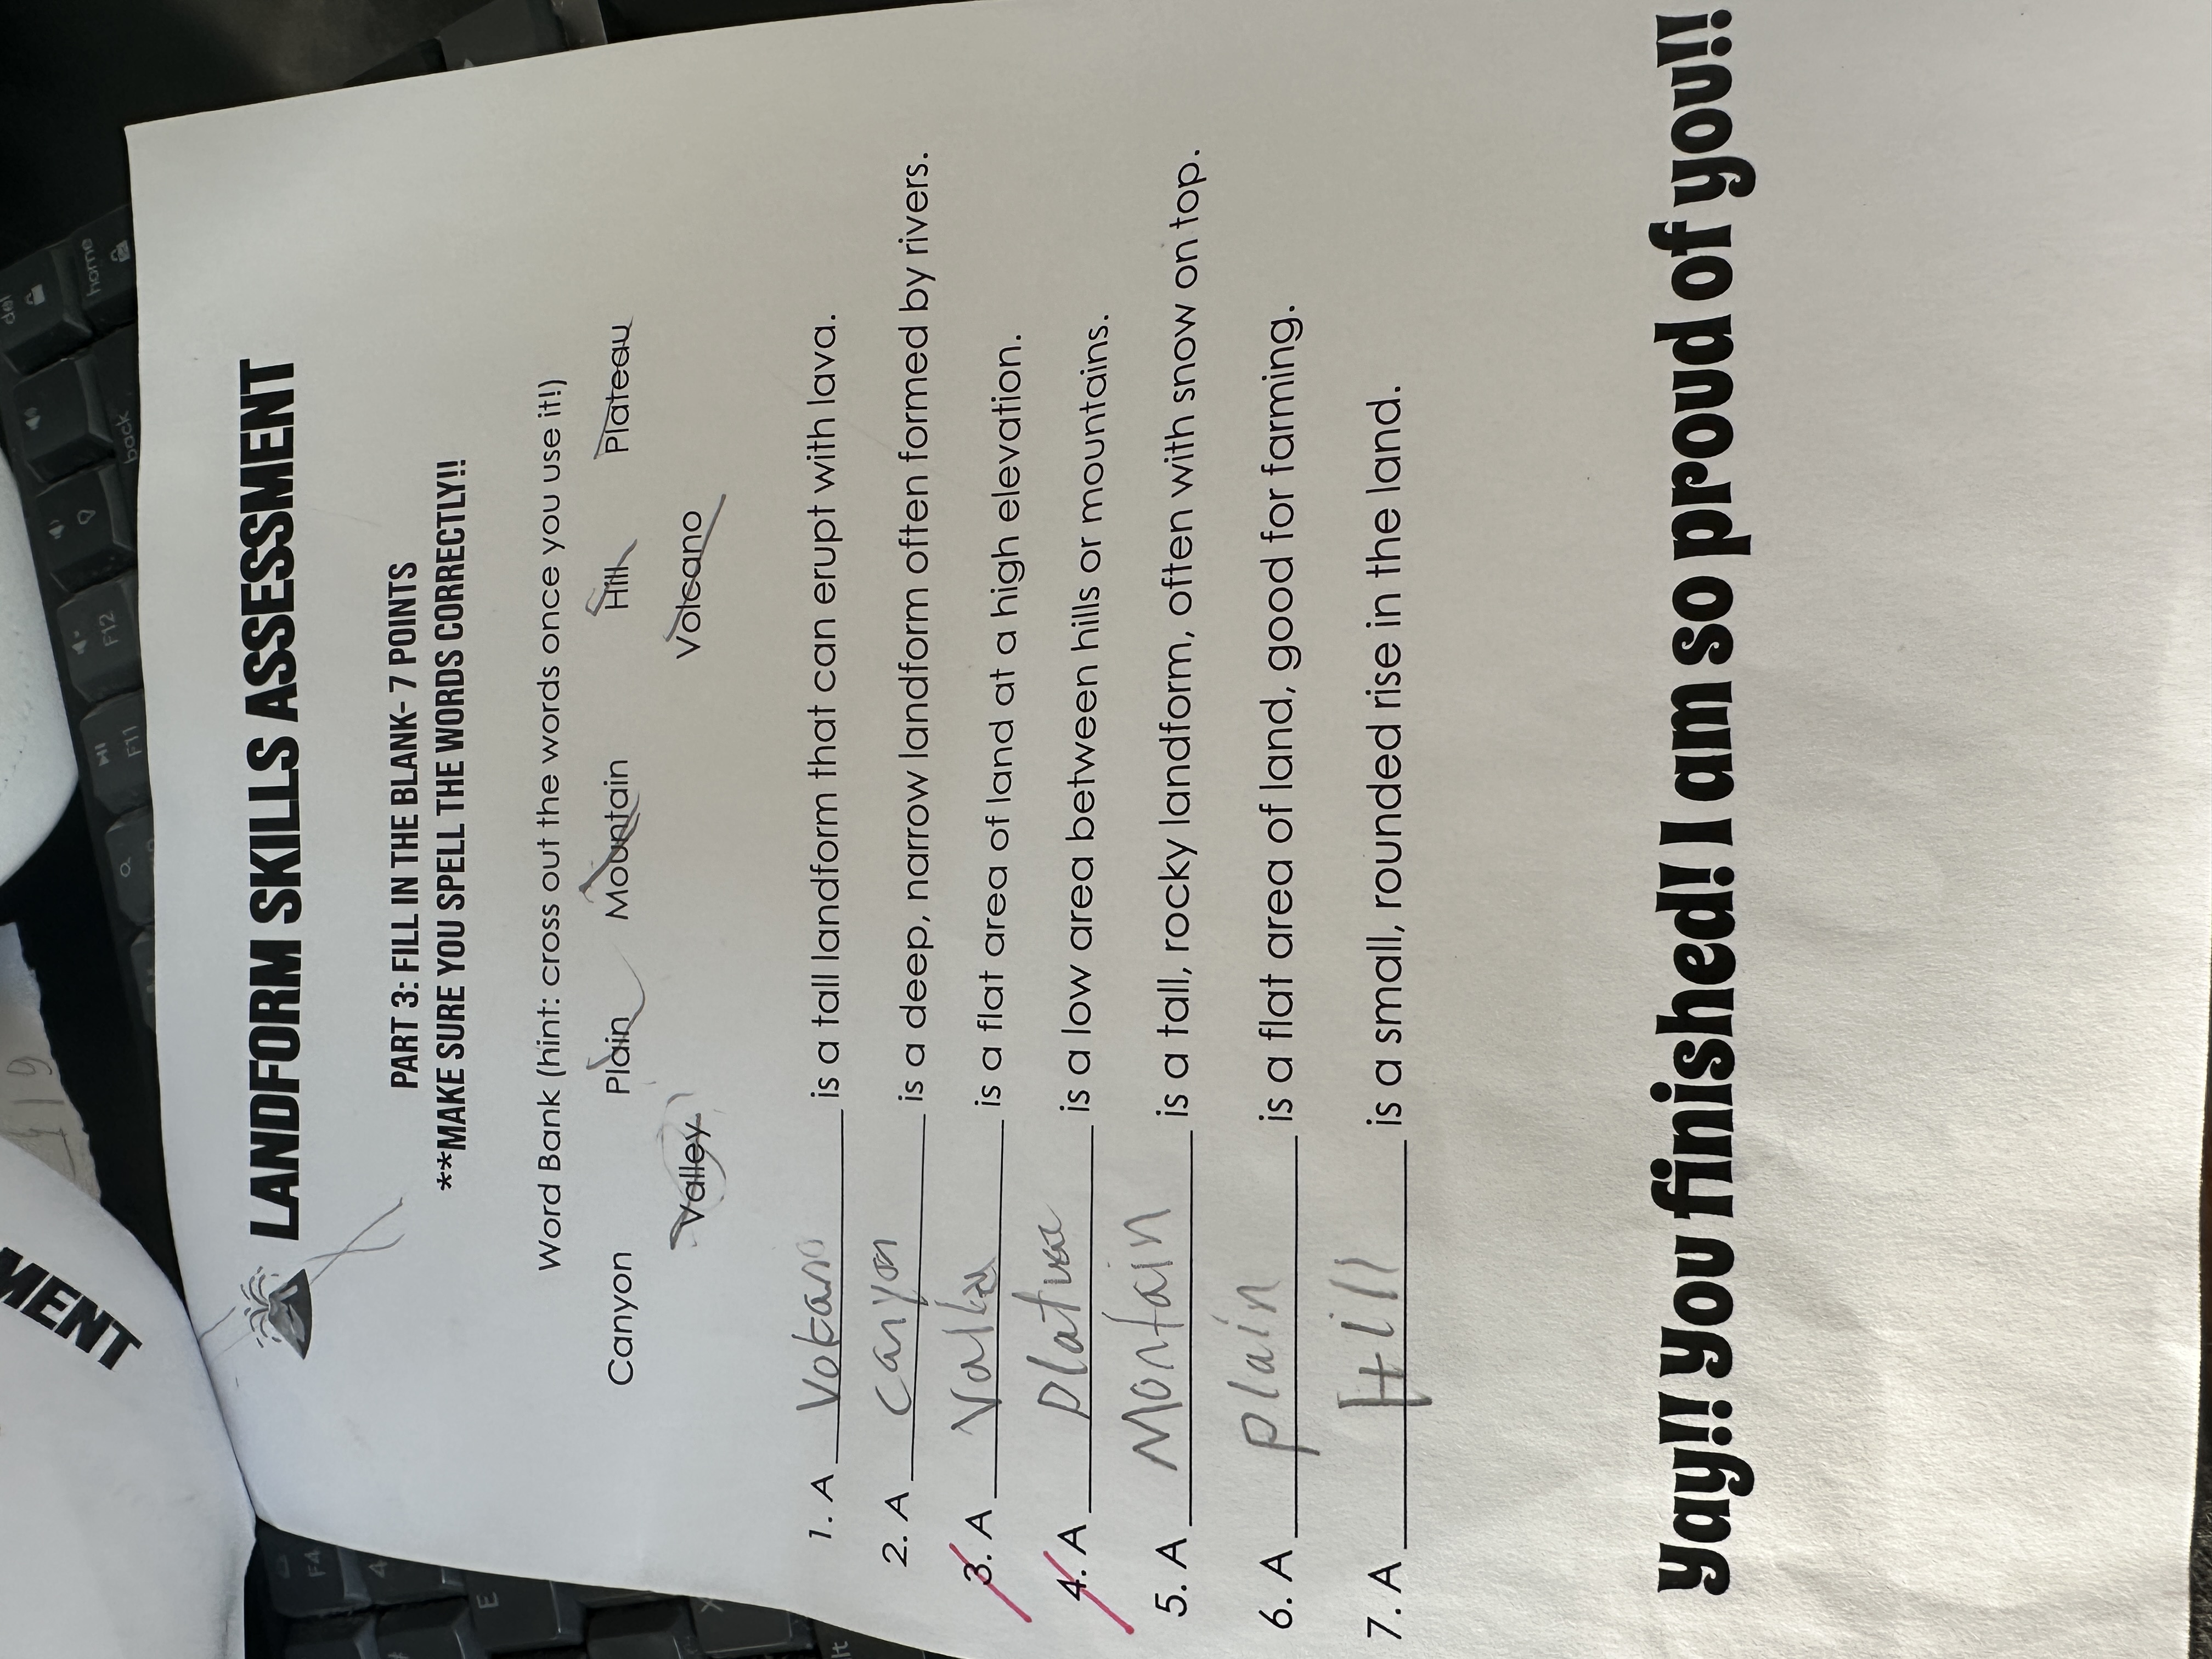 MENT
19
del
home
F11
F12
back
F4
4
E
X
LANDFORM SKILLS ASSESSMENT
PART 3: FILL IN THE BLANK- 7 POINTS
**MAKE SURE YOU SPELL THE WORDS CORRECTLY!!
Word Bank (hint: cross out the words once you use it!)
Canyon Plain Mountain Hill Plateau
Valley Volcano
1. A Volcano is a tall landform that can erupt with lava.
2. A canyon is a deep, narrow landform often formed by rivers.
3. A is a flat area of land at a high elevation.
4. A is a low area between hills or mountains.
5. A Montain is a tall, rocky landform, often with snow on top.
6. A plain is a flat area of land, good for farming.
7. A Hill is a small, rounded rise in the land.
Yay!! You finished! I am so proud of you!!